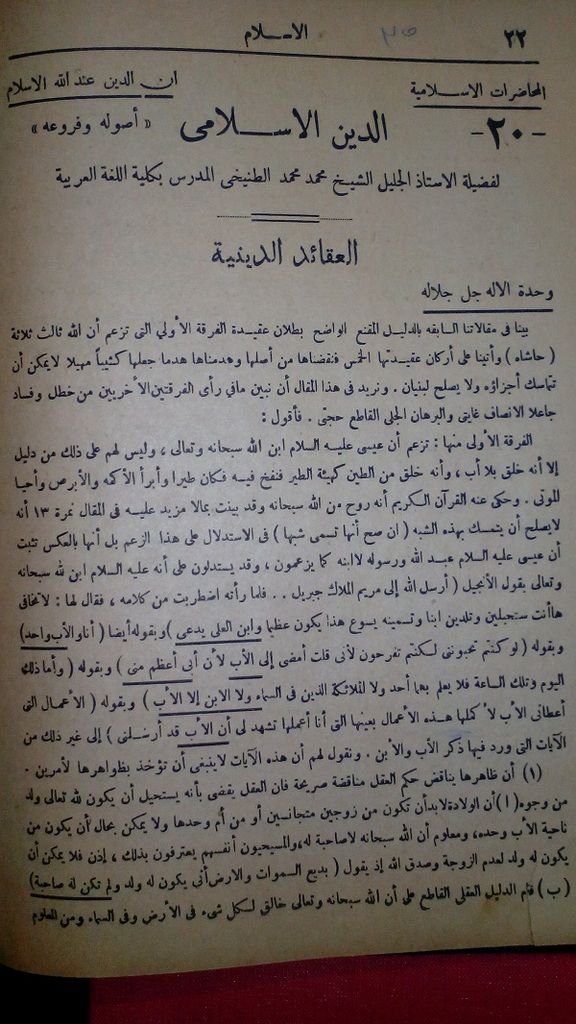 ٢٢ الاسلام ٣٥
المحاضرات الاسلامية ان الدين عند الله الاسلام
-٢٠- الدين الاسلامى « أصوله وفروعه »
لفضيلة الاستاذ الجليل الشيخ محمد محمد الطنيخى المدرس بكلية اللغة العربية
العقائد الدينية
وحدة الاله جل جلاله
بينا فى مقالاتنا السابقه بالدليل المقنع الواضح بطلان عقيدة الفرقة الأولي التى تزعم أن الله ثالث ثلاثة
( حاشاه ) وأتينا على أركان عقيدتها الخمس فنقضناها من أصلها وهدمناها هدما جعلها كثيباً مهيلا لايمكن أن
تتماسك أجزاؤه ولا يصلح لبنيان . ونريد فى هذا المقال أن نبين مافي رأى الفرقتين الأخريين من خطل وفساد
جاعلا الانصاف غايتى والبرهان الجلى القاطع حجتى . فأقول :
الفرقة الأولى منها : تزعم أن عيسى عليه السلام ابن الله سبحانه وتعالى ، وليس لهم على ذلك من دليل
إلا أنه خلق بلا أب ، وأنه خلق من الطين كهيئة الطير فنفخ فيه فكان طيرا وأبرأ الأكمه والأبرص وأحيا
الموتى . وحكى عنه القرآن الكريم أنه روح من الله سبحانه وقد بينت بمالا مزيد عليه فى المقال نمرة ١٣ أنه
لايصلح أن يتمسك بهذه الشبه ( ان صح أنها تسمى شبها ) فى الاستدلال على هذا الزعم بل أنها بالعكس تثبت
أن عيسى عليه السلام عبد الله ورسوله لاابنه كما يزعمون ، وقد يستدلون على أنه عليه السلام ابن لله سبحانه
وتعالى بقول الأنجيل ( أرسل الله إلى مريم الملاك جبريل . . فلما رأته اضطربت من كلامه ، فقال لها : لاتخافى
هاأنت ستحبلين وتلدين ابنا وتسمينه يسوع هذا يكون عظيما وابن العلى يدعى ) وبقوله أيضا ( أنا والأب واحد)
وبقوله ( لو كنتم تحبوننى لكنتم تفرحون لأنى قلت أمضى إلى الأب لأن أبى أعظم منى ) وبقوله ( وأما ذلك
اليوم وتلك الساعة فلا يعلم بهما أحد ولا الملائكة الذين فى السماء ولا الابن إلا الأب ) وبقوله ( الأعمال التى
أعطانى الأب لأ كملها هذه الأعمال بعينها التى أنا أعملها تشهد لى أن الأب قد أرسلنى ) إلى غير ذلك من
الآيات التى ورد فيها ذكر الأب والأبن . ونقول لهم أن هذه الآيات لاينبغى أن تؤخذ بظواهرها لأمرين .
(١) أن ظاهرها يناقض حكم العقل مناقضة صريحة فان العقل يقضى بأنه يستحيل أن يكون لله تعالى ولد
من وجوه( ا )أن الولادة لابد أن تكون من زوجين متجانسين أو من أم وحدها ولا يمكن بحال أن يكون من
ناحية الأب وحده، ومعلوم أن الله سبحانه لاصاحبة له، والمسيحيون أنفسهم يعترفون بذلك ، إذن فلا يمكن أن
يكون له ولد لعدم الزوجة وصدق الله إذ يقول ( بديع السموات والارض أنى يكون له ولد ولم تكن له صاحبة)
( ب ) قام الدليل العقلى القاطع على أن الله سبحانه وتعالى خالق لكل شىء فى الأرض وفى السماء ومن المعلوم